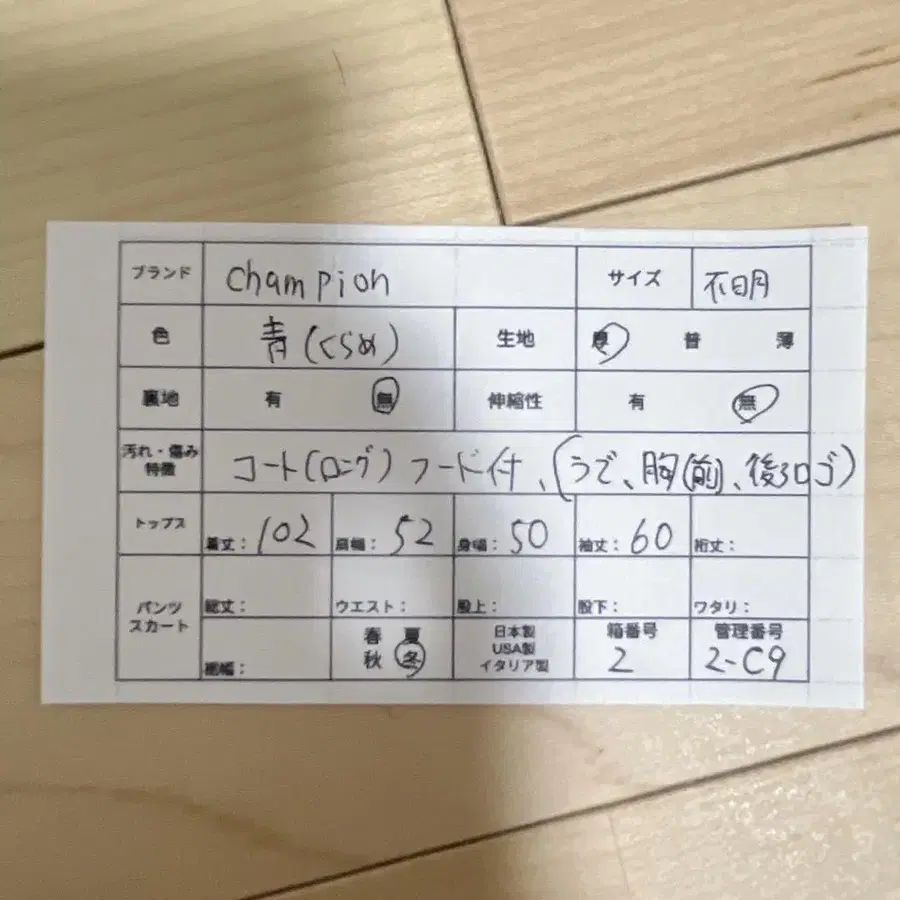 ブランド champion サイズ 不明
色 青(くらめ) 生地 厚 普 薄
裏地 有 無 伸縮性 有 無
汚れ・傷み
特徴 コート(ロング)フード付、(うで、胸(前)、後ろロゴ)
トップス 着丈:102 肩幅:52 身幅:50 袖丈:60 裄丈:
パンツ
スカート 総丈: ウエスト: 股上: 股下: ワタリ:
裾幅: 春 夏
秋 冬
日本製
USA製
イタリア製
箱番号
2
管理番号
2-C9